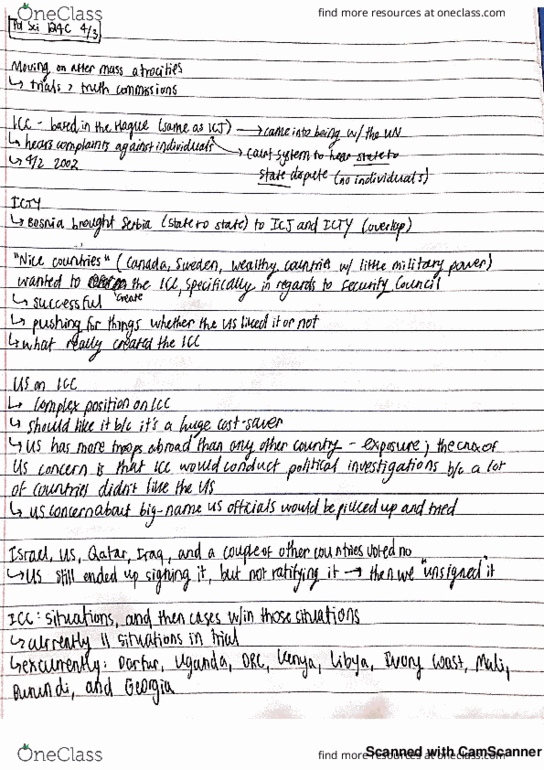 OneClass
find more resources at oneclass.com
Pol Sci 124C 4/3
Moving on after mass atrocities
↳ trials > truth commissions
ICC - based in the Hague (same as ICJ) → came into being w/ the UN
↳ hears complaints against individuals
→ court system to hear state to
↳ 4/2 2002
state dispute (no individuals)
ICTY
↳ Bosnia brought Serbia (state to state) to ICJ and ICTY (overlap)
"Nice countries" (Canada, Sweden, wealthy countries w/ little military power)
wanted to create the ICC, specifically in regards to Security Council
↳ successful
↳ pushing for things whether the US liked it or not
↳ what really created the ICC
US on ICC
↳ complex position on ICC
↳ should like it b/c it's a huge cost-saver
↳ US has more troops abroad than any other country - exposure; the crux of
US concern is that ICC would conduct political investigations b/c a lot
of countries didn't like the US
↳ US concern about big-name US officials would be picked up and tried
Israel, US, Qatar, Iraq, and a couple of other countries voted no
↳ US still ended up signing it, but not ratifying it → then we "unsigned" it
ICC: situations, and then cases w/in those situations
↳ currently 11 situations in trial
↳ ex currently: Darfur, Uganda, DRC, Kenya, Libya, Ivory Coast, Mali,
Burundi, and Georgia
OneClass
find more resources at oneclass.com
Scanned with CamScanner